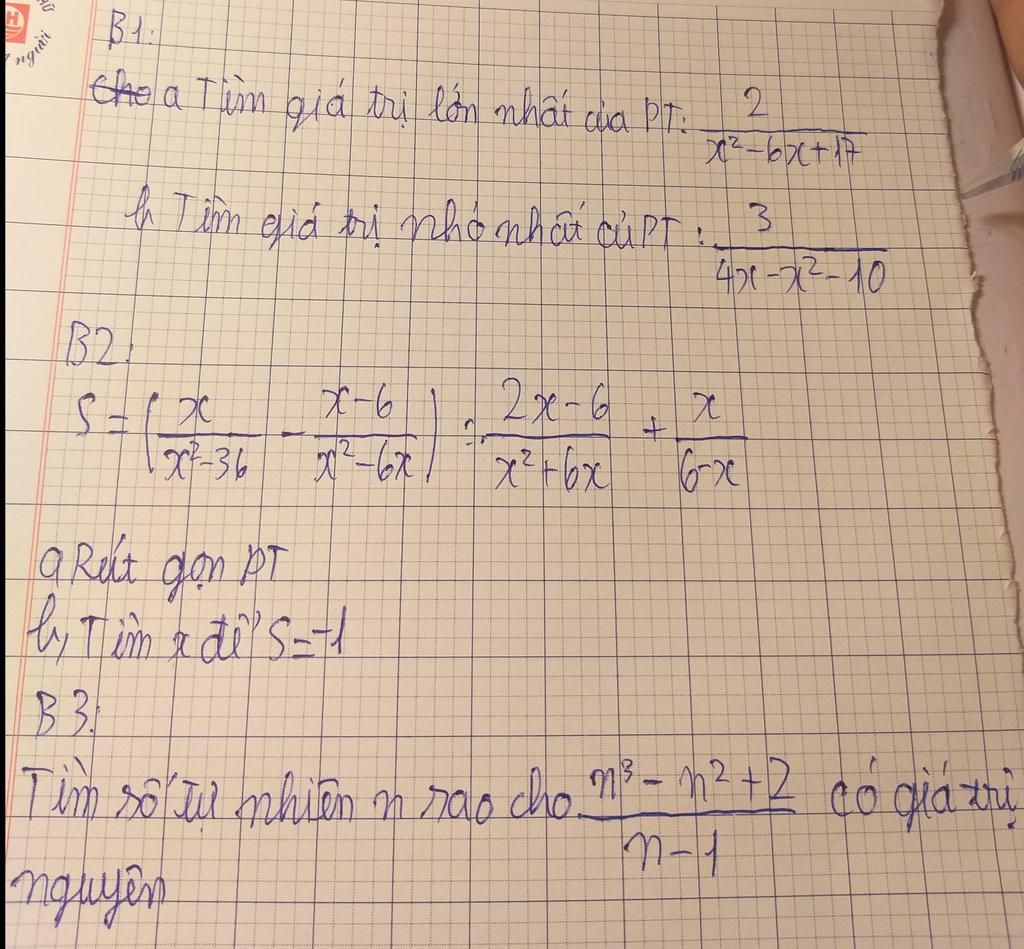 H
người
B1:
Cho a Tìm giá trị lớn nhất của PT: \frac{2}{x²-6x+17}
b Tìm giá trị nhỏ nhất củ PT: \frac{3}{4x-x²-10}
B2:
S = (\frac{x}{x²-36} - \frac{x-6}{x²-6x}) : \frac{2x-6}{x²+6x} + \frac{x}{6-x}
a Rút gọn PT
b, Tìm x để S=-1
B3:
Tìm số tự nhiên n sao cho \frac{n³-n²+2}{n-1} có giá trị
nguyên